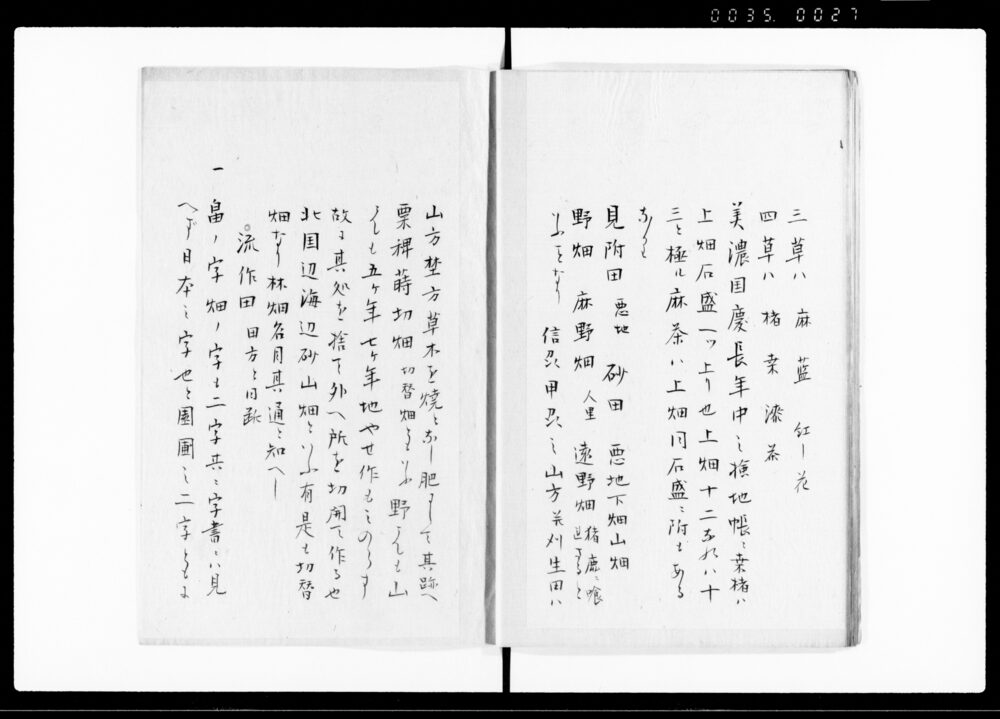 0035. 0027
三草ハ 麻 藍 紅ノ花
四草ハ 楮 桒 漆 茶
美濃国慶長年中之検地帳ニ桒楮ハ
上畑石盛一ッ上り也上畑十二なれハ十
三と極ル麻茶ハ上畑同石盛ニ附もある
なり
見附田 悪地 砂田 悪地下畑山畑
野畑 麻野畑 人里 遠野畑 猪鹿ニ喰
いふなり 信州甲州之山方ニ苅生田ハ
山方埜方草木を焼となし肥ニして其跡へ
粟稗蒔切畑 切替畑ともいふ 野ニても山
ニても五ケ年七ケ年地やせ作もミのらす
故ニ其処を捨て外へ所を切開て作る也
北国辺海辺砂山畑といふ有是も切替
畑なり林畑名目其通と知へし
○流作田 田方と同断
一 畠ノ字畑ノ字も二字共ニ字書ニハ見
へず日本之字也と園圃之二字ともに